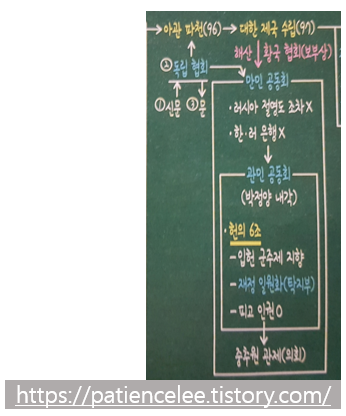 →아관 파천(96) → 대한 제국 수립(97)
해산 황국 협회(보부상)
②독립 협회
만민 공동회
①신문 ③문
·러시아 절영도 조차 X
·한·러 은행 X
관민 공동회
(박정양 내각)
·헌의 6조
-입헌 군주제 지향
-재정 일원화(탁지부)
-피고 인권 O
중추원 관제(의회)
https://patiencelee.tistory.com/